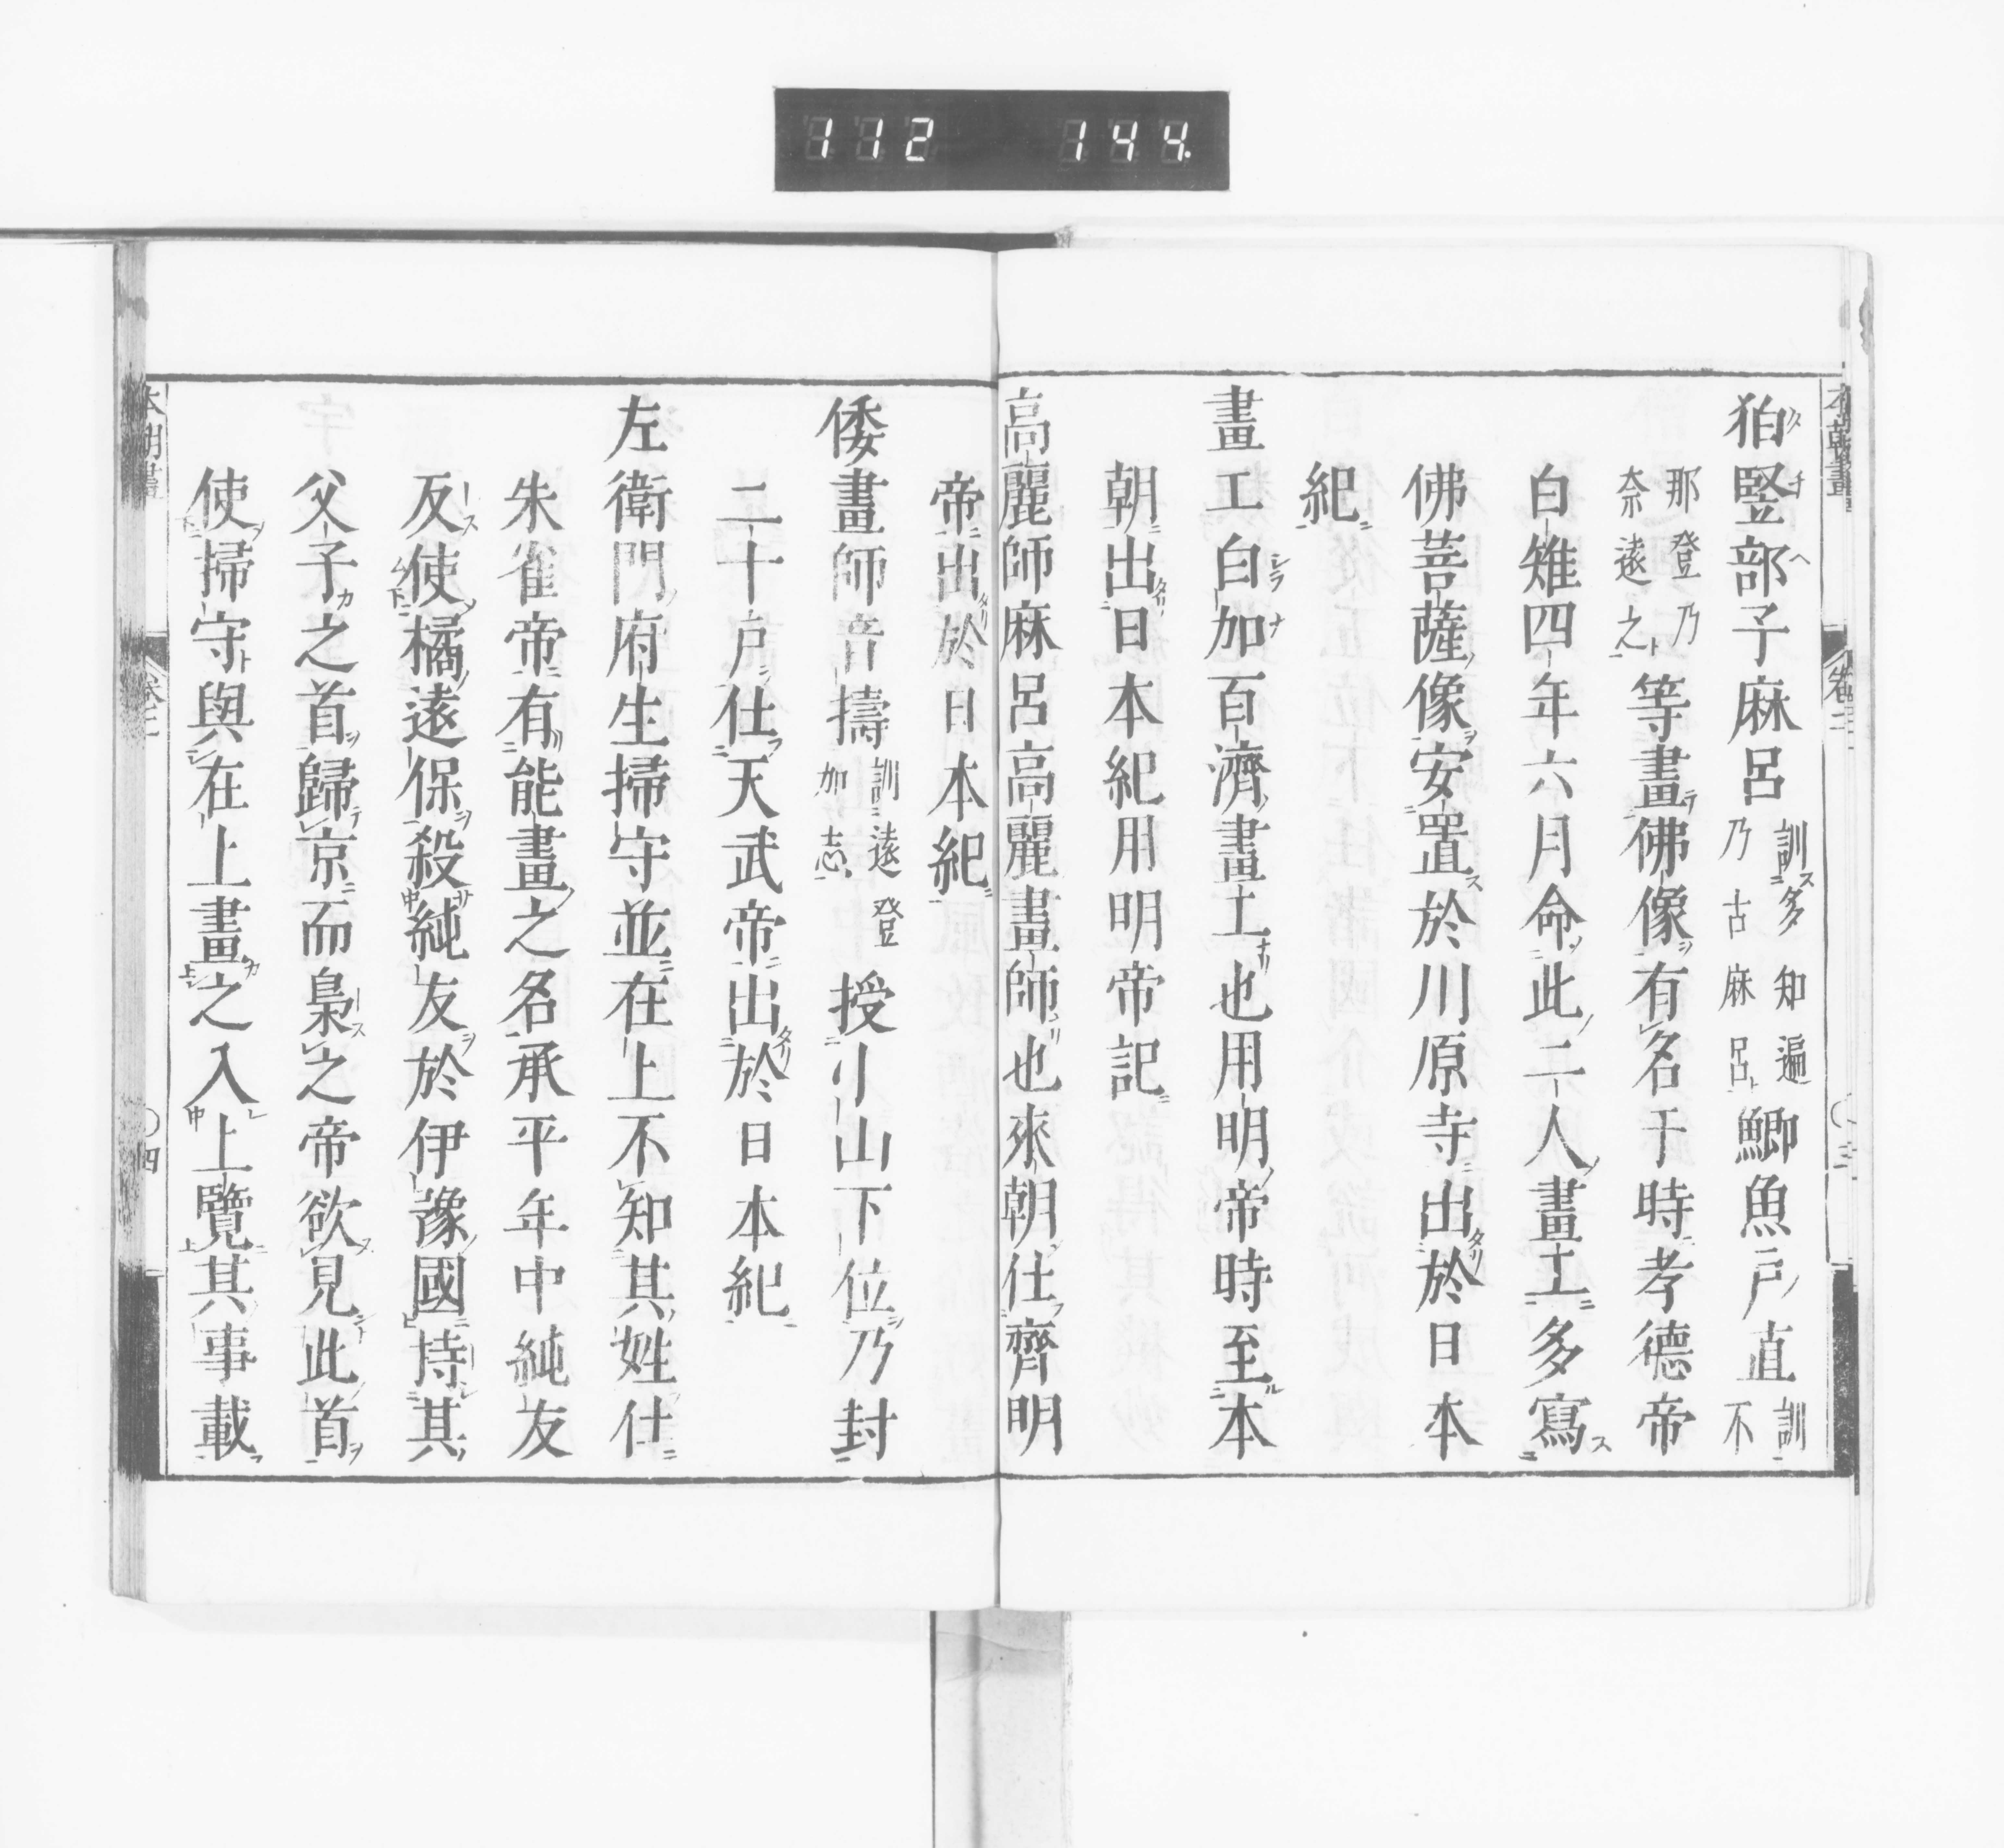 112 144
狛竪部子麻呂訓多知遍乃古麻呂鯽魚戸直訓不
那登乃奈遠之等畫佛像有名于時孝德帝
白雉四年六月命此二人畫工多寫
佛菩薩像安置於川原寺出於日本
紀
畫工白加百濟畫工也用明帝時至本
朝出日本紀用明帝記
高麗師麻呂高麗畫師也來朝仕齊明
帝出於日本紀
倭畫師音擣訓遠登加志授小山下位乃封
二十戸仕天武帝出於日本紀
左衛門府生掃守並在上不知其姓仕
朱雀帝有能畫之名承平年中純友
反使橘遠保殺純友於伊豫國持其
父子之首歸京而梟之帝欲見此首
使掃守與在上畫之入上覽其事載